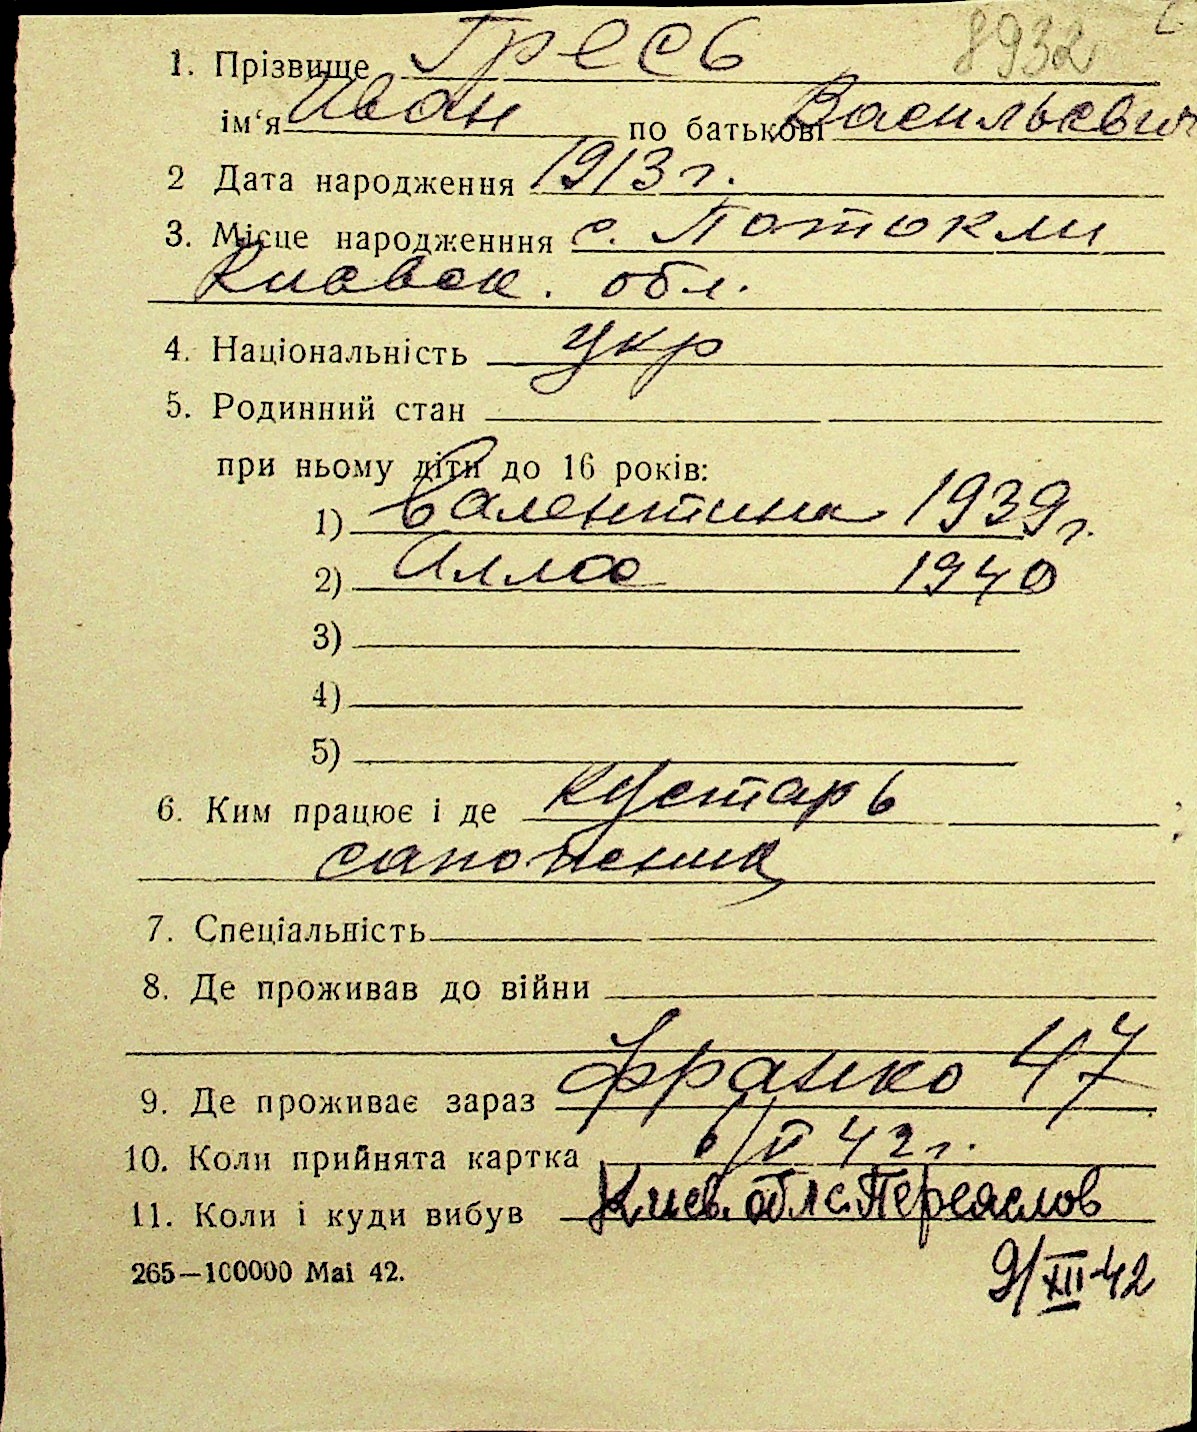 8932
1. Прізвище Гресь
ім'я Иван по батькові Васильевич
2 Дата народження 1913 г.
3. Місце народженння с. Потокли
Киевск. обл.
4. Національність укр
5. Родинний стан
при ньому діти до 16 років:
1) Валентина 1939 г.
2) Алла 1940
3)
4)
5)
6. Ким працює і де кустарь
сапожник
7. Спеціальність
8. Де проживав до війни
9. Де проживає зараз Франко 47
10. Коли прийнята картка 42 г.
11. Коли і куди вибув Киев. обл с. Переяслов
265—100000 Mai 42.
9/XII-42